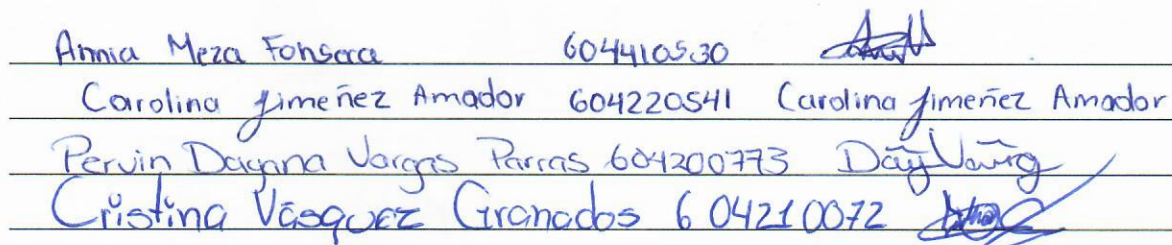 Annia Meza Fonseca 604410530
Carolina Jimeñez Amador 604220541 Carolina Jimeñez Amador
Pervin Dayana Vargas Parras 604200773
Cristina Vásquez Granados 604210072